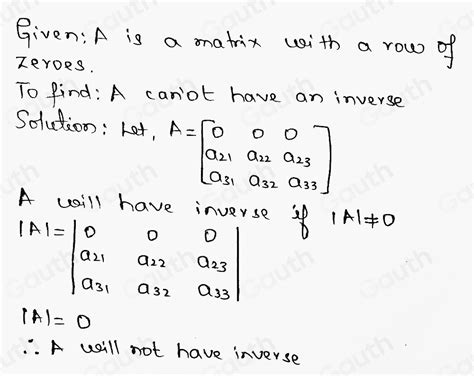 Given: A is a matrix with a row of
zeroes.
To find: A can'ot have an inverse
Solution: Let, A = [0 0 0
a21 a22 a23
a31 a32 a33]
A will have inverse if |A|≠0
|A| = |0 0 0
a21 a22 a23
a31 a32 a33|
|A| = 0
∴ A will not have inverse